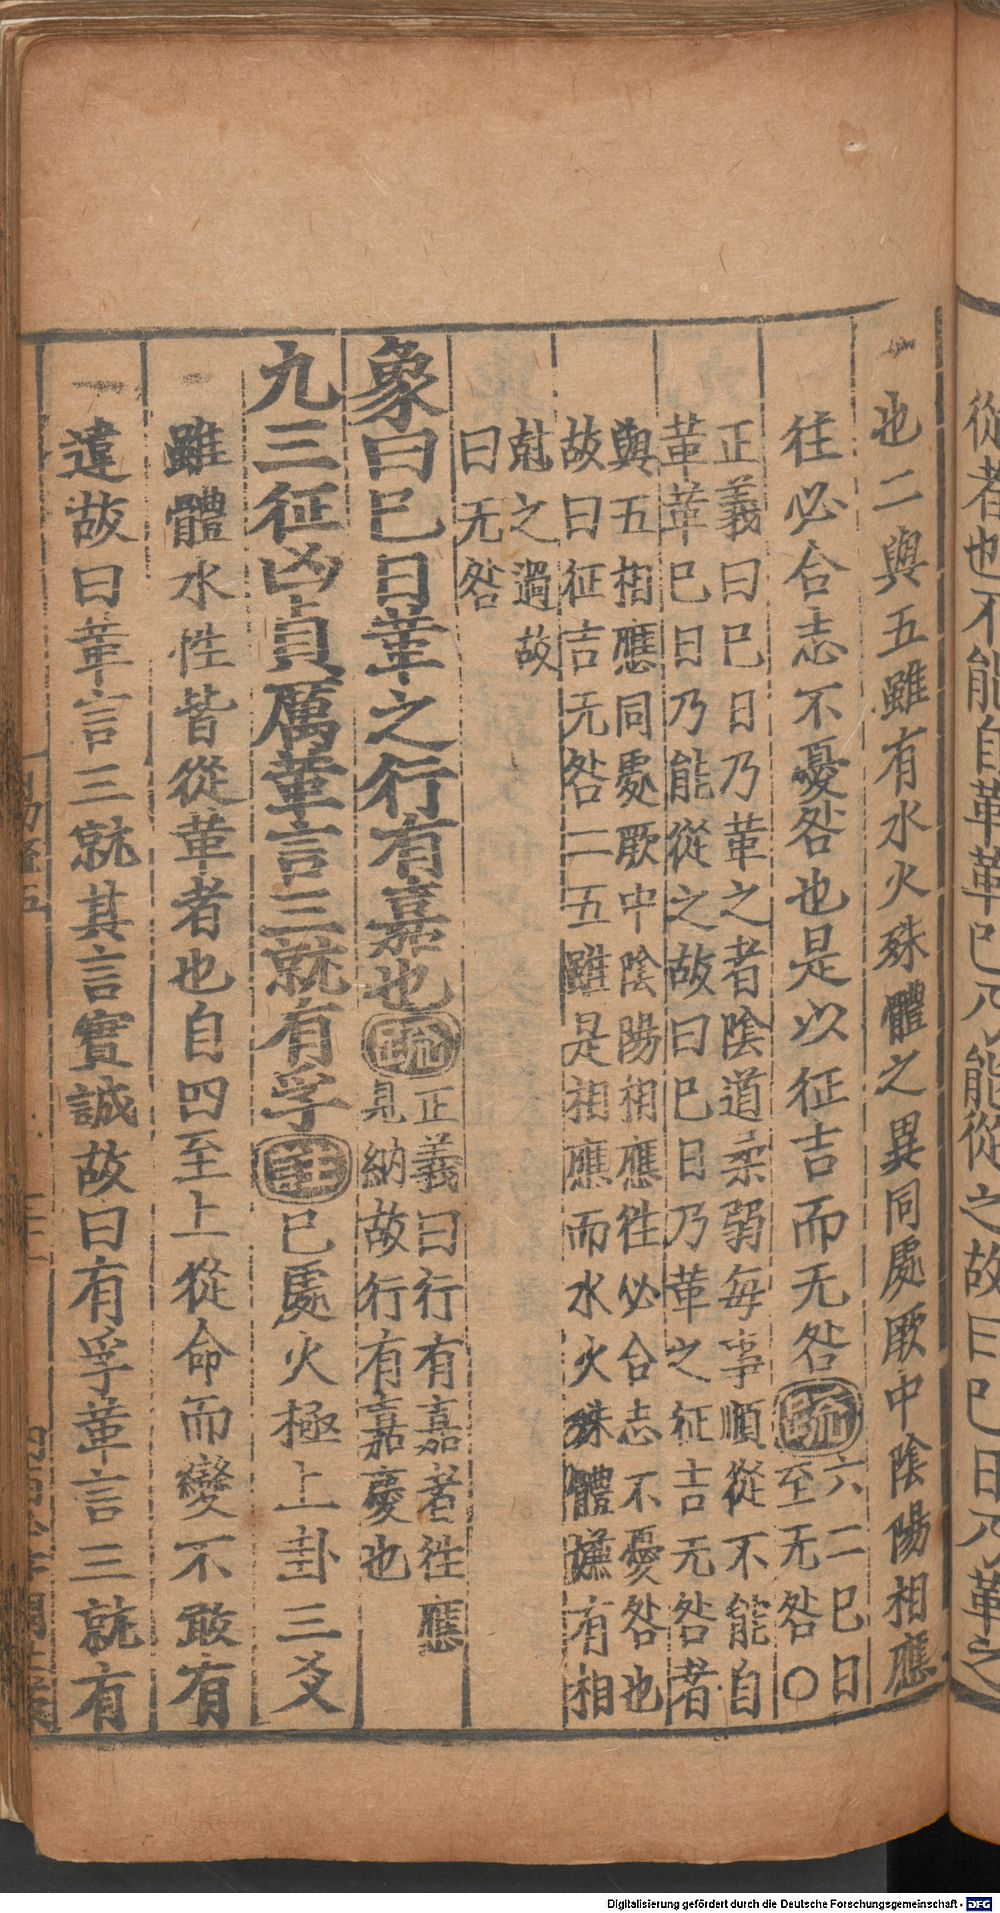 從者也不能自革革已乃能從之故曰巳日乃革之
也二與五雖有水火殊體之異同處厥中陰陽相應
往必合志不憂咎也是以征吉而无咎疏六二巳日
至无咎○
正義曰巳日乃革之者陰道柔弱每事順從不能自
革革巳日乃能從之故曰巳日乃革之征吉无咎者
與五相應同處厥中陰陽相應往必合志不憂咎也
故曰征吉无咎二五雖是相應而水火殊體嫌有相
尅之過故
曰无咎
象曰巳日革之行有嘉也疏正義曰行有嘉者往應
見納故行有嘉慶也
九三征凶貞厲革言三就有孚註巳處火極上卦三爻
雖體水性皆從革者也自四至上從命而變不敢有
違故曰革言三就其言實誠故曰有孚革言三就有
Digitalisierung gefördert durch die Deutsche Forschungsgemeinschaft - DFG